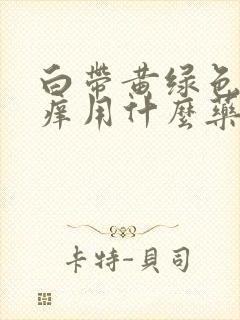 白帶黄绿色
痒用什麼藥
卡特-貝司